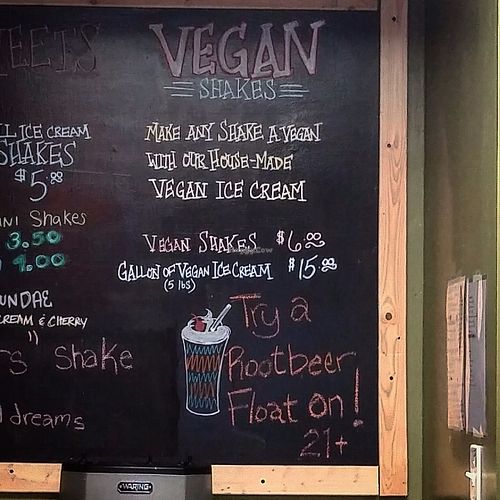 EETS
L ICE CREAM
SHAKES
$5.00
INI Shakes
3.50
4.00
UNDAE
CREAM & CHERRY
rs Shake
dreams
VEGAN
SHAKES
MAKE ANY SHAKE A VEGAN
WITH OUR HOUSE-MADE
VEGAN ICE CREAM
VEGAN SHAKES $6.00
GALLON OF VEGAN ICE CREAM $15.00
(5 lbS)
Try a
Rootbeer
Float on!
21+
WARING